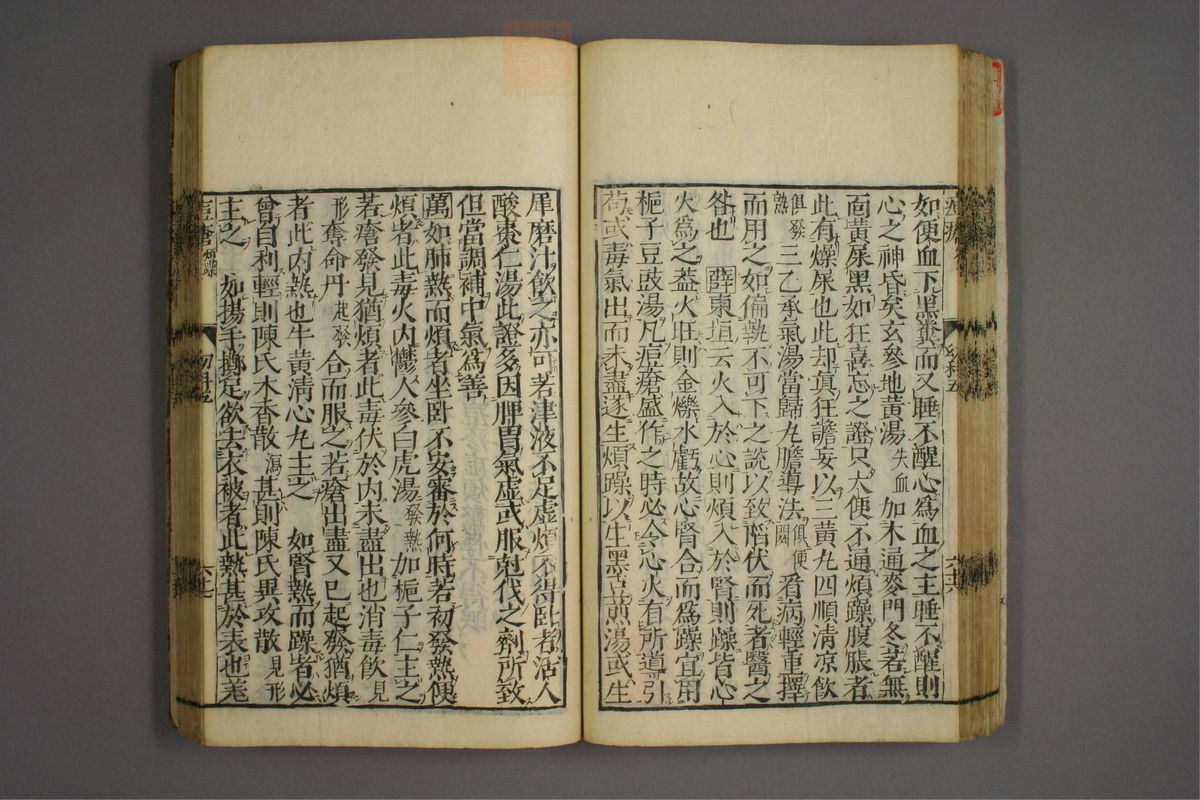 如便血下黑糞而又睡不醒心爲血之主睡不醒則
心之神昏矣玄參地黃湯失血加木通麥門冬若無
面黃屎黑如狂喜忘之證只大便不通煩躁腹脹者
此有燥屎也此却眞狂譫妄以三黃丸四順清凉飮
俱發熱三乙承氣湯當歸丸膽導法俱便閉看病輕重擇
而用之如偏執不可下之說以致陷伏而死者醫之
咎也 薛東垣云火入於心則煩入於腎則躁皆心
火爲之蓋火旺則金爍水虧故心腎合而爲躁宜用
梔子豆豉湯凡痘瘡盛作之時必令心火有所導引
苟或毒氣出而未盡遂生煩躁以生黑豆煎湯或生
幼科五
六十六
犀磨汁飮之亦可若津液不足虛煩不得臥者活人
酸棗仁湯此證多因脾胃氣虛或服尅伐之劑所致
但當調補中氣爲善
萬如肺熱而煩者坐臥不安審於何時若初發熱便
煩者此毒火內鬱人參白虎湯發熱加梔子仁主之
若瘡發見猶煩者此毒伏於內未盡出也消毒飮見
形奪命丹起發合而服之若瘡出盡又已起發猶煩
者此內熱也牛黃清心丸主之 如腎熱而躁者必
曾自利輕則陳氏木香散瀉甚則陳氏異攻散見形
主之 如揚手擲足欲去衣被者此熱甚於表也羌
痘瘡煩躁
幼科五
六十七